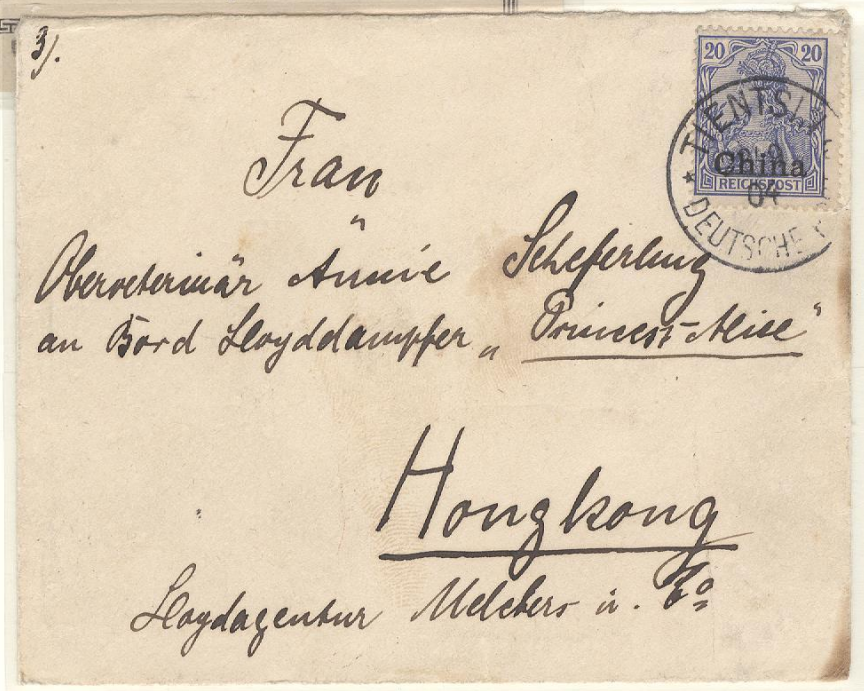 3).
20 20
China
REICHSPOST
TIENTSIN
04
DEUTSCHE
Frau
Oberveterinär Annie Scheferling
an Bord Lloyddampfer „Princess-Alice“
Hongkong
Lloydagentur Melchers u. Co